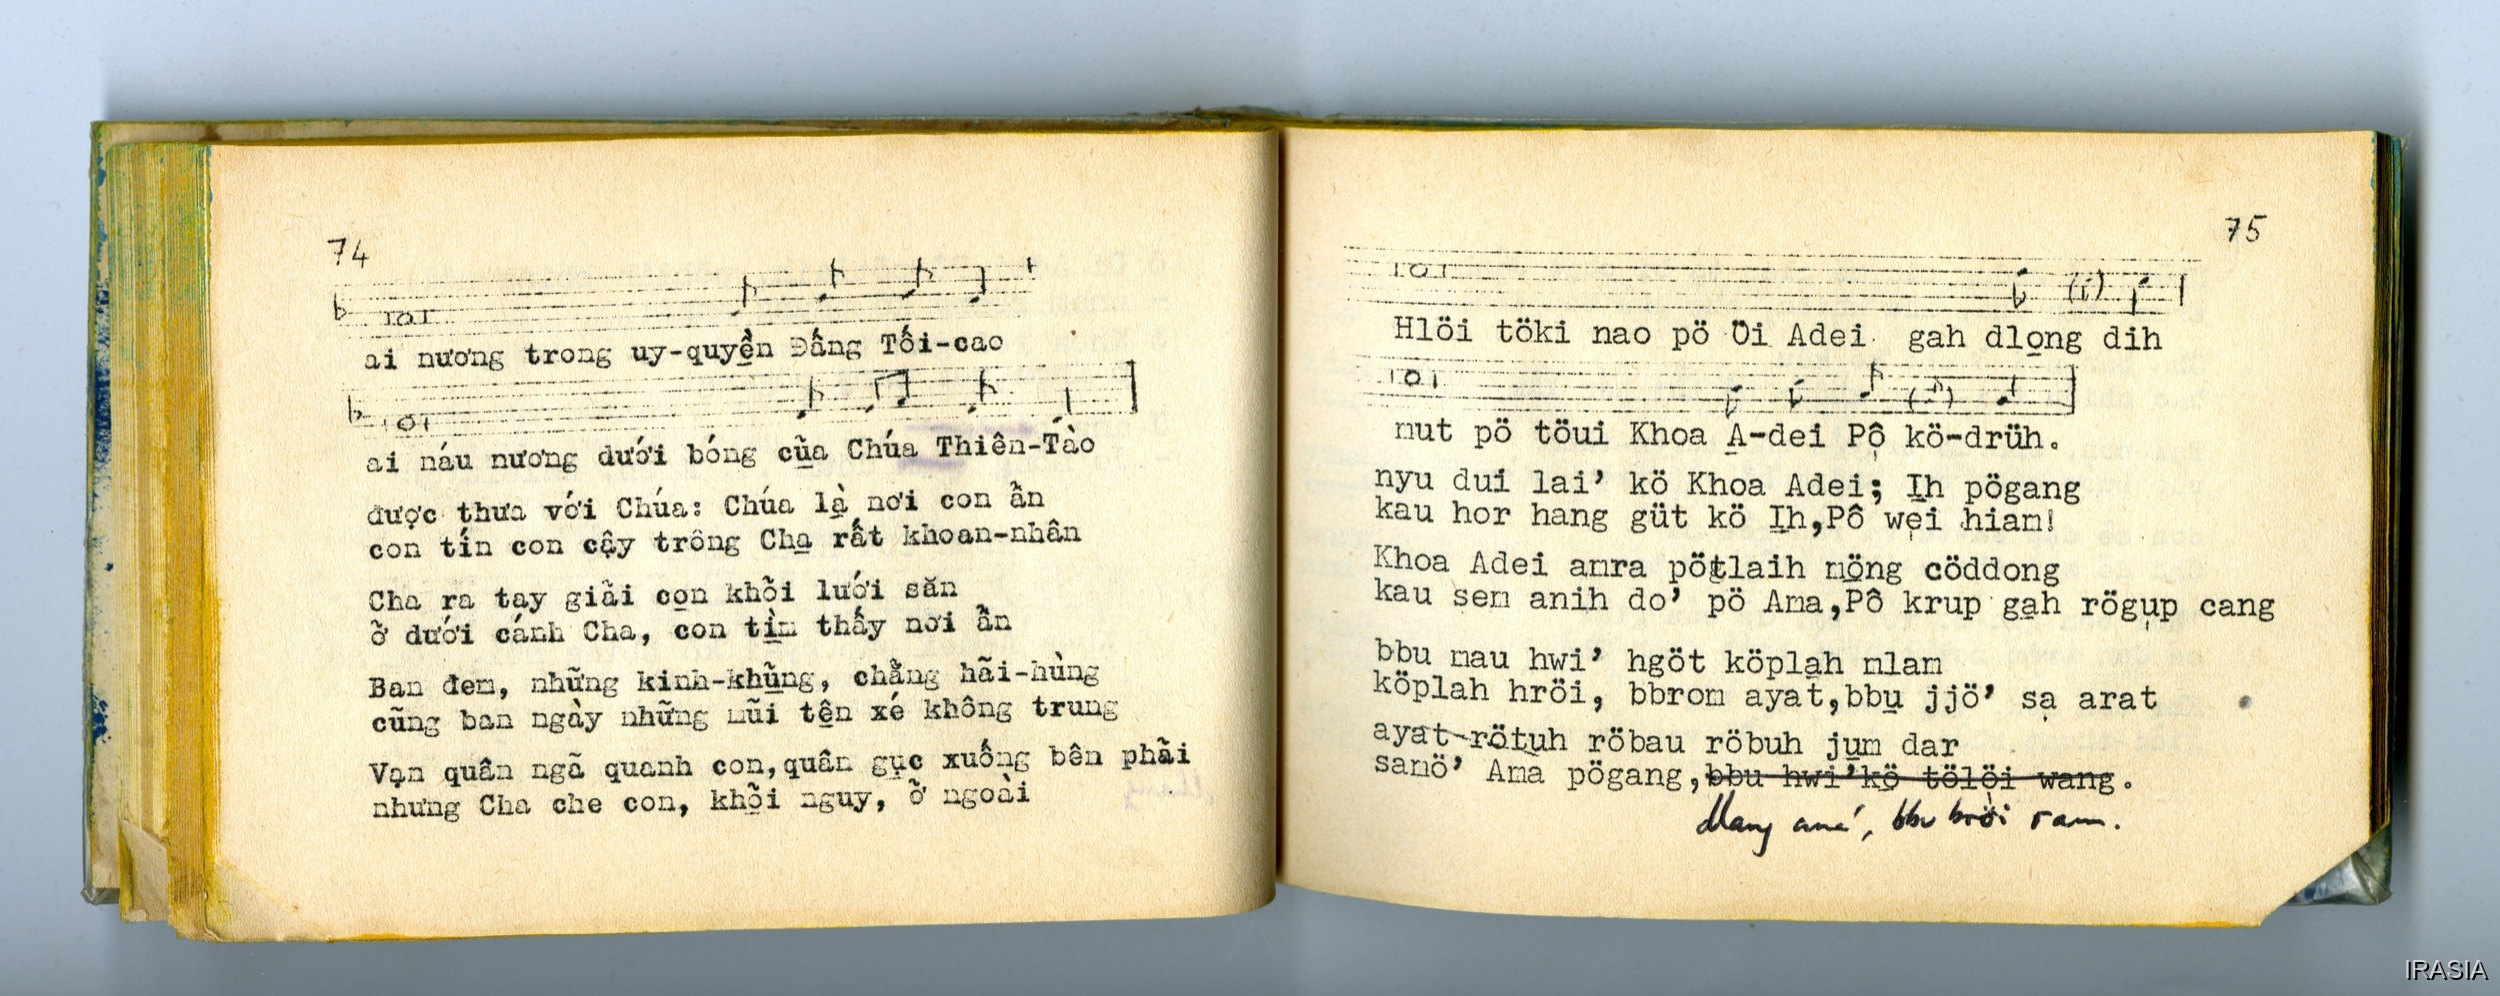 74
ai nương trong uy-quyền Đấng Tối-cao
ai náu nương dưới bóng cũa Chúa Thiên-Tào
được thưa với Chúa: Chúa là nơi con ẫn
con tín con cậy trông Cha rất khoan-nhân
Cha ra tay giãi con khõi lưới săn
ỡ dưới cánh Cha, con tìm thấy nơi ẫn
Ban đem, những kinh-khũng, chẵng hãi-hùng
cũng ban ngày những mũi tên xé không trung
Vạn quân ngã quanh con, quân gục xuống bên phãi
nhưng Cha che con, khõi nguy, ỡ ngoài
75
Hlöi töki nao pö Öi Adei gah dlo̱ng dih
nut pö töui Khoa A̱-dei Pộ kö-drüh.
nyu dui lai' kö Khoa Adei; I̱h pögang
kau hor hang güt kö I̱h,Pô wẹi hiam!
Khoa Adei amra pötlaih mö̱ng cöddong
kau sem anih do' pö Ama,Pô krup ga̱h rögụp cang
bbu mau hwi' hgöt köpla̱h mlam
köplah hröi, bbrom ayat,bbu̱ jjö' sạ arat
ayat rötuh röbau röbuh ju̱m dar
samö' Ama pögang,bbu hwi'kö̱ tölö̱i wang.
dlang ana', bbu bröi ram.
IRASIA